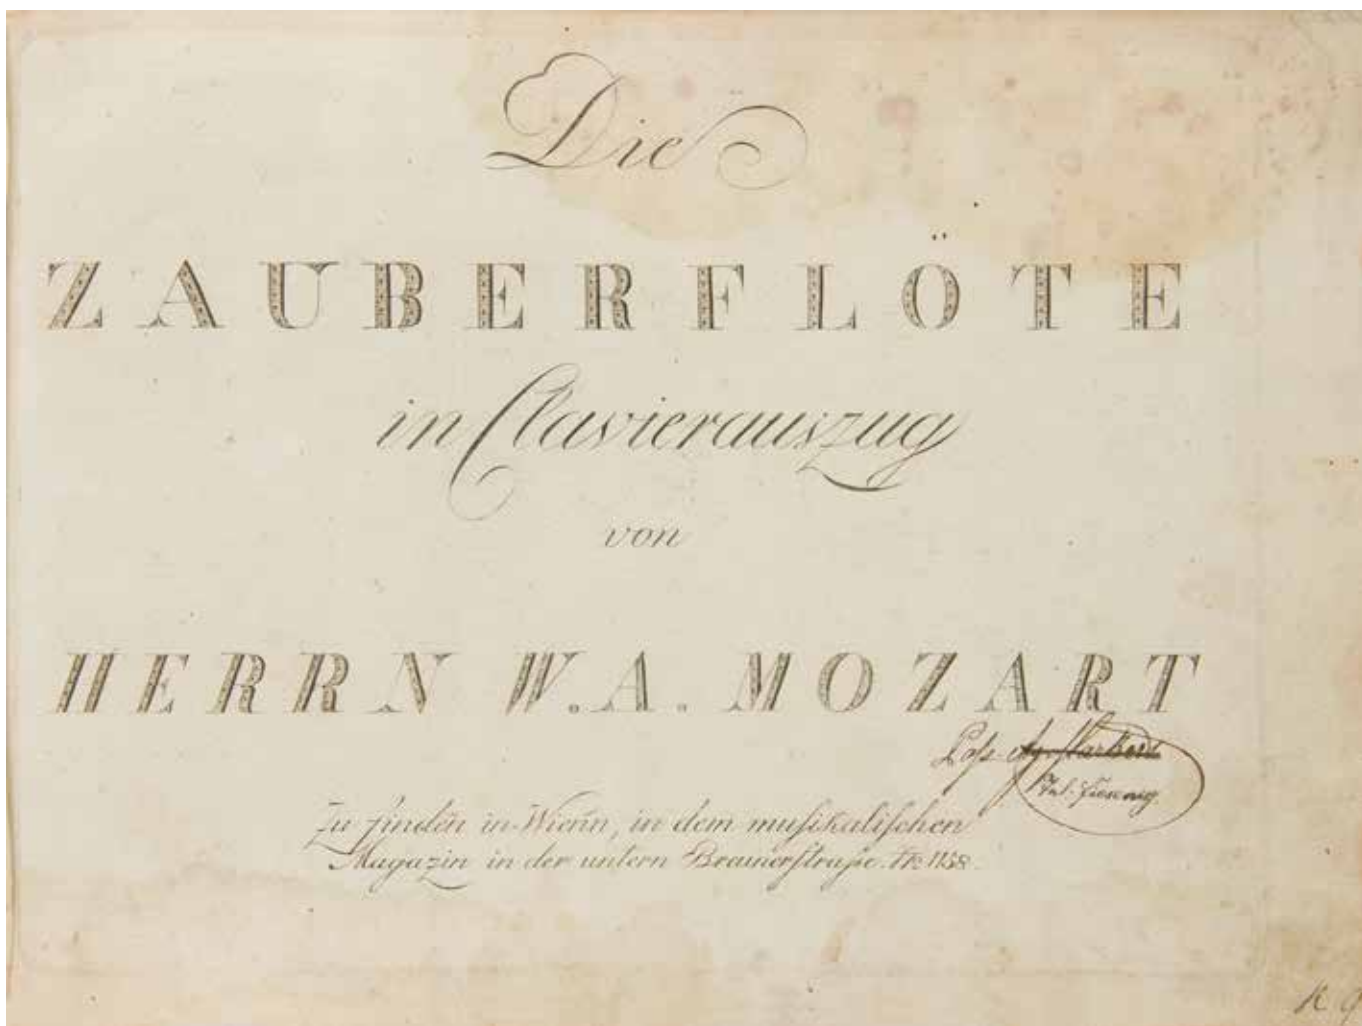 Die
ZAUBERFLÖTE
in Clavierauszug
von
HERRN W. A. MOZART
Zu finden in Wienn, in dem musikalischen
Magazin in der untern Breunerstraße. Nr. 1158.